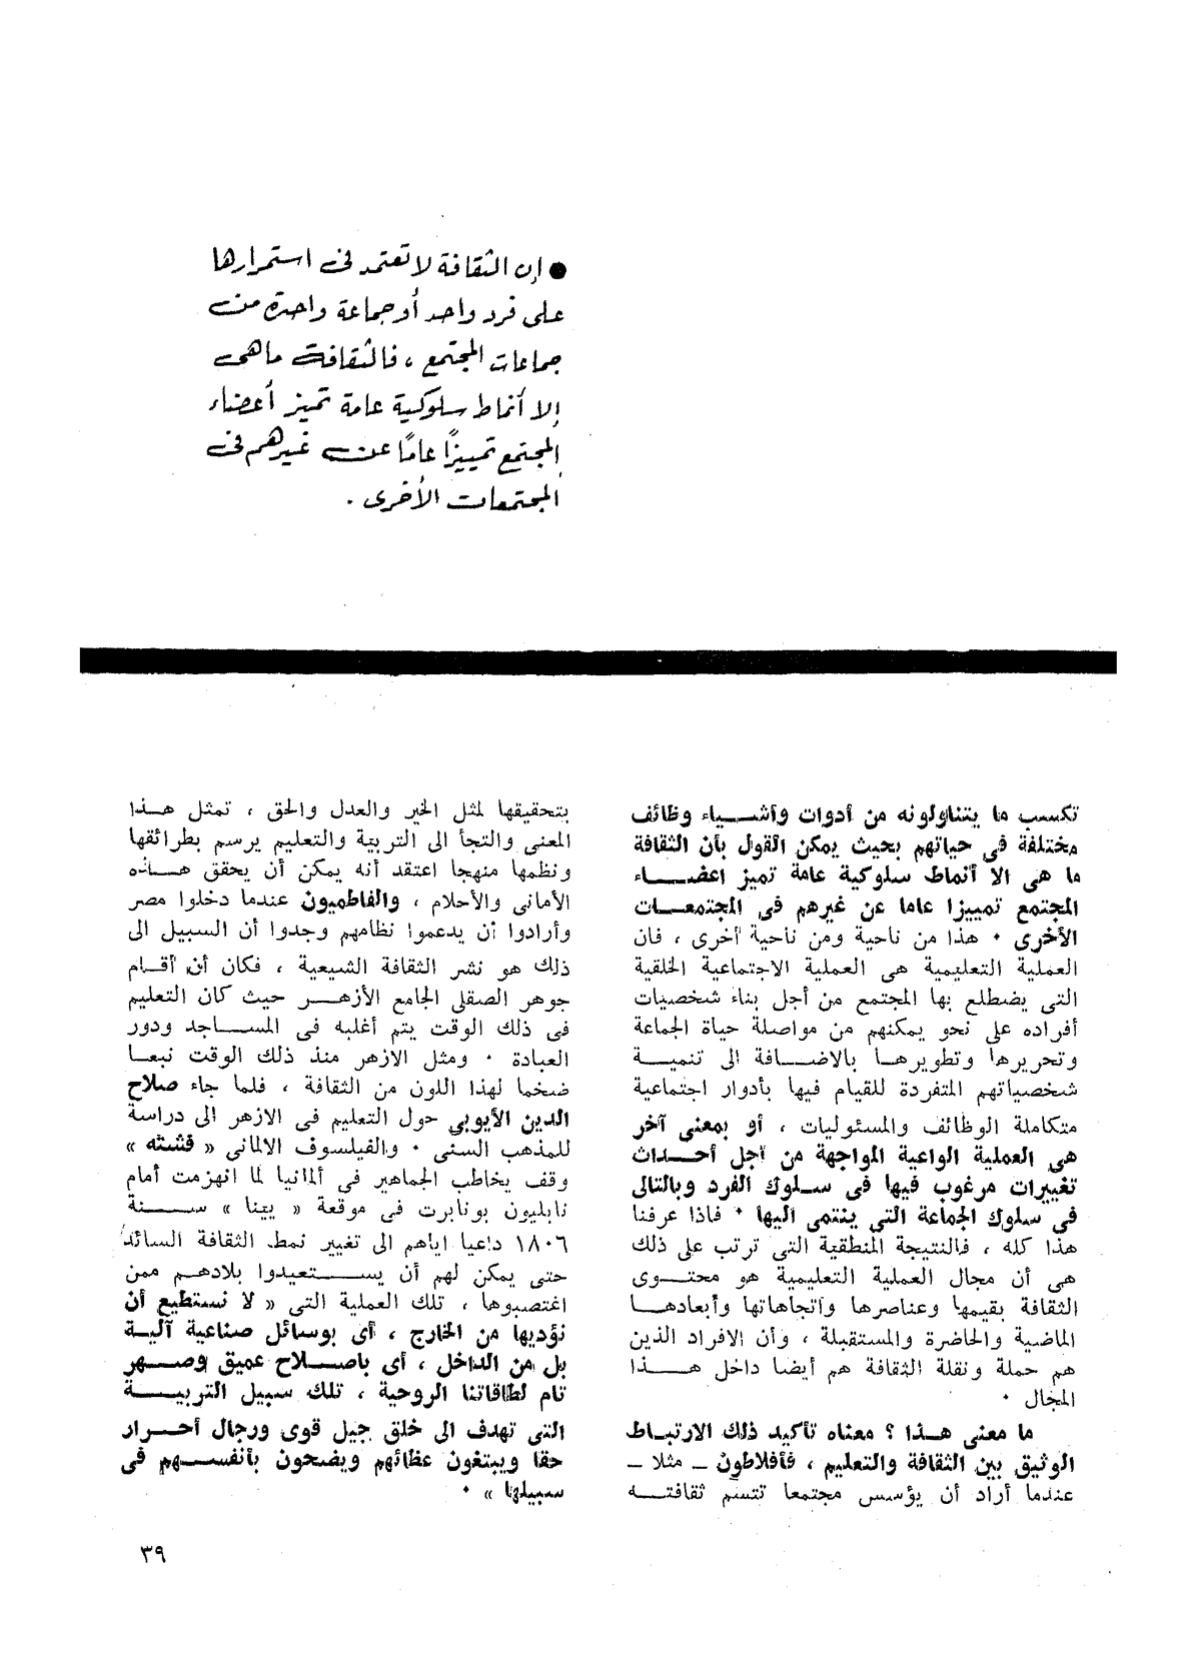 ● إن الثقافة لا تعتمد فى استمرارها
على فرد واحد أو جماعة واحدة من
جماعات المجتمع ، فالثقافة ما هى
إلا أنماط سلوكية عامة تميز أعضاء
المجتمع تمييزًا عامًا عن غيرهم فى
المجتمعات الأخرى .
تكسب ما يتناولونه من أدوات وأشياء وظائف
مختلفة فى حياتهم بحيث يمكن القول بأن الثقافة
ما هى الا أنماط سلوكية عامة تميز اعضاء
المجتمع تمييزا عاما عن غيرهم فى المجتمعات
الأخرى ٠ هذا من ناحية ومن ناحية أخرى ، فان
العملية التعليمية هى العملية الاجتماعية الخلقية
التى يضطلع بها المجتمع من أجل بناء شخصيات
أفراده على نحو يمكنهم من مواصلة حياة الجماعة
وتحريرها وتطويرها بالاضافة الى تنمية
شخصياتهم المتفردة للقيام فيها بأدوار اجتماعية
متكاملة الوظائف والمسئوليات ، أو بمعنى آخر
هى العملية الواعية المواجهة من أجل أحداث
تغييرات مرغوب فيها فى سلوك الفرد وبالتالى
فى سلوك الجماعة التى ينتمى اليها ٠ فاذا عرفنا
هذا كله ، فالنتيجة المنطقية التى ترتب على ذلك
هى أن مجال العملية التعليمية هو محتوى
الثقافة بقيمها وعناصرها واتجاهاتها وأبعادها
الماضية والحاضرة والمستقبلة ، وأن الافراد الذين
هم حملة ونقلة الثقافة هم أيضا داخل هذا
المجال ٠
ما معنى هذا ؟ معناه تأكيد ذلك الارتباط
الوثيق بين الثقافة والتعليم ، فأفلاطون – مثلا –
عندما أراد أن يؤسس مجتمعا تتسم ثقافته
بتحقيقها لمثل الخير والعدل والحق ، تمثل هذا
المعنى والتجأ الى التربية والتعليم يرسم بطرائقها
ونظمها منهجا اعتقد أنه يمكن أن يحقق هذه
الأمانى والأحلام ، والفاطميون عندما دخلوا مصر
وأرادوا أن يدعموا نظامهم وجدوا أن السبيل الى
ذلك هو نشر الثقافة الشيعية ، فكان أن أقام
جوهر الصقلى الجامع الأزهر حيث كان التعليم
فى ذلك الوقت يتم أغلبه فى المساجد ودور
العبادة ٠ ومثل الازهر منذ ذلك الوقت نبعا
ضخما لهذا اللون من الثقافة ، فلما جاء صلاح
الدين الأيوبى حول التعليم فى الازهر الى دراسة
للمذهب السنى ٠ والفيلسوف الالمانى « فشته »
وقف يخاطب الجماهير فى ألمانيا لما انهزمت أمام
نابليون بونابرت فى موقعة « يينا » سنة
١٨٠٦ داعيا اياهم الى تغيير نمط الثقافة السائد
حتى يمكن لهم أن يستعيدوا بلادهم ممن
اغتصبوها ، تلك العملية التى « لا نستطيع أن
نؤديها من الخارج ، أى بوسائل صناعية آلية
بل من الداخل ، أى باصلاح عميق وصهر
تام لطاقاتنا الروحية ، تلك سبيل التربية
التى تهدف الى خلق جيل قوى ورجال أحرار
حقا ويبتغون عظائهم ويضحون بأنفسهم فى
سبيلها » ٠
٣٩